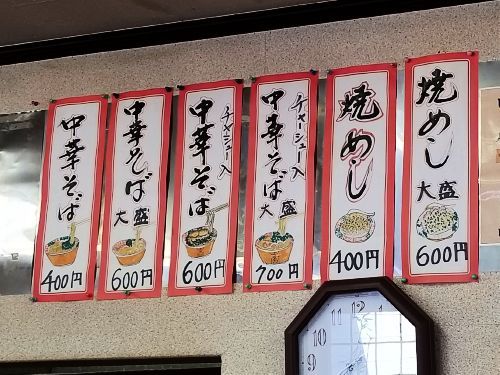 中華そば
400円
中華そば
大盛
600円
チャーシュー入
中華そば
600円
チャーシュー入
中華そば
大盛
700円
焼めし
400円
焼めし
大盛
600円
11
12
10
9